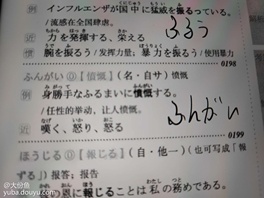 例 インフルエンザが国中に猛威を振るっている。
/流感在全国肆虐。
近 力を発揮する、栄える
慣 腕を振るう/发挥力量; 暴力を振るう/使用暴力
ふるう
0198
ふんがい◎【憤慨】(名・自サ) 愤慨
例 身勝手なふるまいに憤慨する。
/任性的举动,让人愤慨。
近 嘆く、怒り、怒る
ふんがい
0199
ほうじる◎【報じる】(自・他一)(也可写成「報
ずる」) 报答;报告
の恩に報じることは私の務めである。
@大谷鱼
yuba.douyu.com